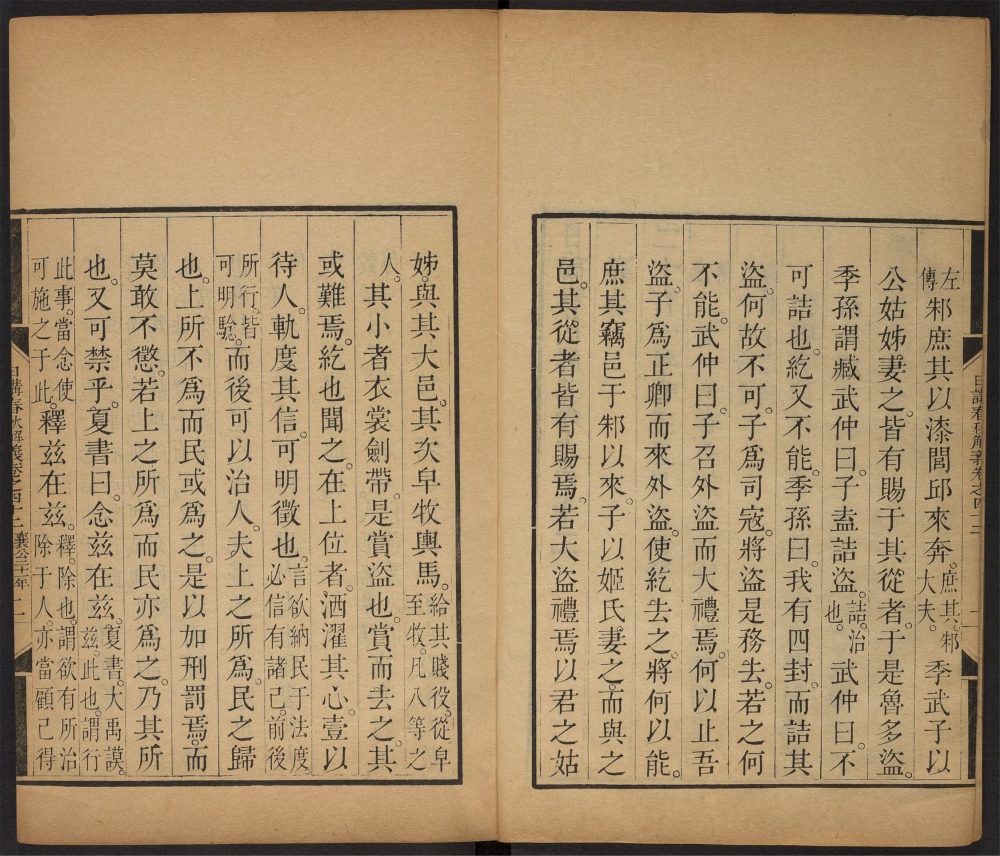 左傳邾庶其以漆閭邱來奔。庶其、邾大夫。季武子以
公姑姊妻之。皆有賜于其從者。于是魯多盜。
季孫謂臧武仲曰。子盍詰盜。詰、治也。武仲曰。不
可詰也。紇又不能。季孫曰。我有四封。而詰其
盜。何故不可。子爲司寇。將盜是務去。若之何
不能。武仲曰。子召外盜而大禮焉。何以止吾
盜。子爲正卿而來外盜。使紇去之。將何以能。
庶其竊邑于邾以來。子以姬氏妻之。而與之
邑。其從者皆有賜焉。若大盜禮焉以君之姑
日講春秋解義卷之四十二
姊。與其大邑。其次皁牧輿馬。給其賤役、從皁至牧、凡八等之
人。其小者衣裳劍帶。是賞盜也。賞而去之。其
或難焉。紇也聞之。在上位者。洒濯其心。壹以
待人。軌度其信。可明徵也。言欲納民于法度、必信有諸己、前後
所行、皆可明驗。而後可以治人。夫上之所爲。民之歸
也。上所不爲而民或爲之。是以加刑罰焉。而
莫敢不懲。若上之所爲而民亦爲之。乃其所
也。又可禁乎。夏書曰。念兹在兹。夏書、大禹謨。兹、此也。謂行
此事、當念使可施之于此。釋兹在兹。釋、除也。謂欲有所治除于人、亦當顧己得
日講春秋解義卷之四十二 襄公二十一年 二